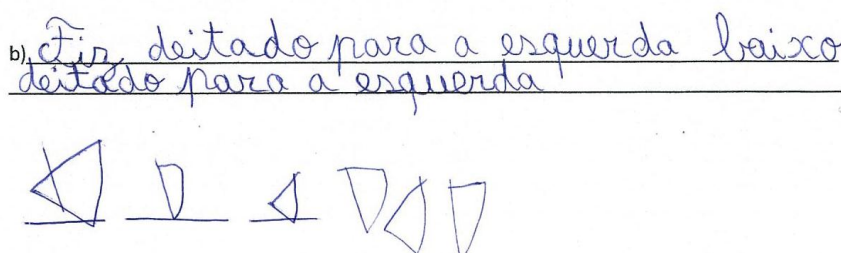 b) Fiz deitado para a esquerda baixo
deitado para a esquerda